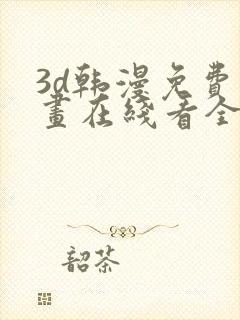 3d韩漫免费
画在线看全
韶茶